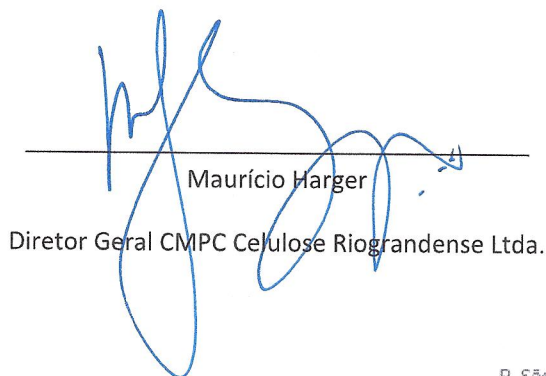 Maurício Harger
Diretor Geral CMPC Celulose Riograndense Ltda.